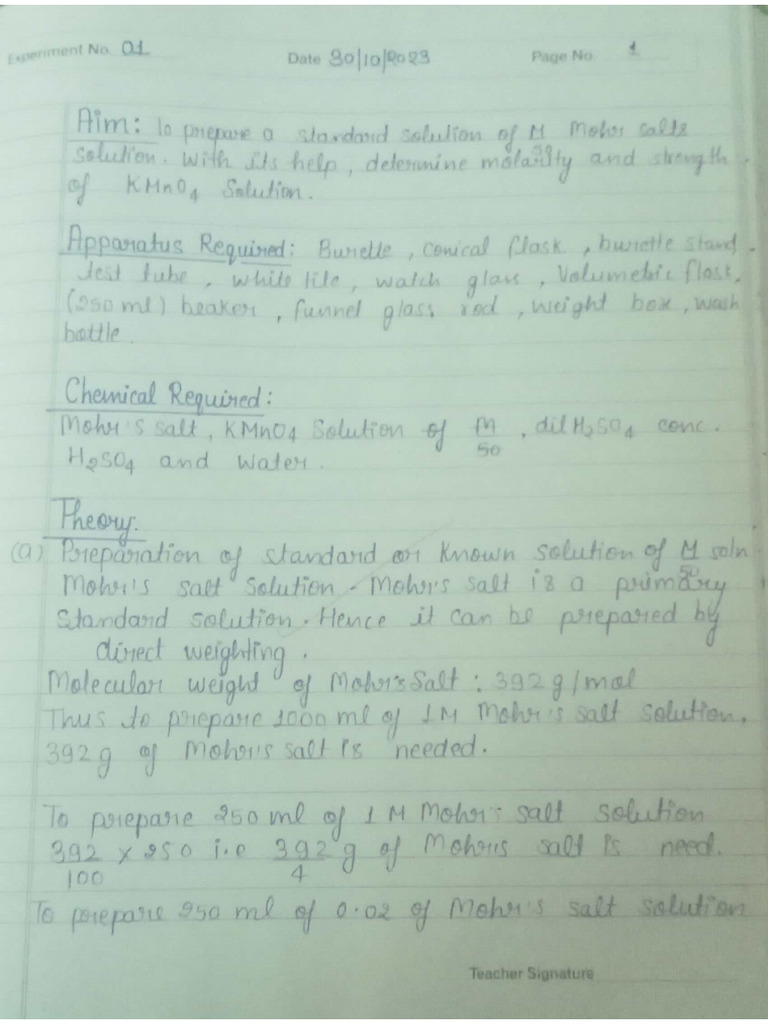 Experiment No. 01 Date 30/10/2023 Page No. 1
Aim: To prepare a standard solution of M/50 Mohr salts
solution. With its help, determine molarity and strength
of KMnO4 Solution.
Apparatus Required: Burette, conical flask, burette stand.
test tube, white tile, watch glass, Volumetric flask.
(250 ml) beaker, funnel glass rod, weight box, wash
bottle.
Chemical Required:
Mohr's salt, KMnO4 Solution of M/50, dil H2SO4 conc.
H2SO4 and water.
Theory.
(a) Preparation of standard or known solution of M/50 soln
Mohr's salt solution. Mohr's salt is a primary
standard solution. Hence it can be prepared by
direct weighting.
Molecular weight of Mohr's Salt : 392 g/mol
Thus to prepare 1000 ml of 1M Mohr's salt solution,
392 g of Mohr's salt is needed.
To prepare 250 ml of 1 M Mohr's salt solution
392/100 x 250 i.e 392/4 g of Mohr's salt is need.
To prepare 250 ml of 0.02 of Mohr's salt solution
Teacher Signature